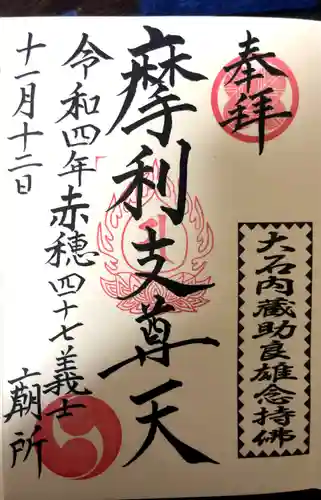 奉拝
大石内蔵助良雄念持佛
摩利支尊天
令和四年赤穂四十七義士廟所
十一月十二日